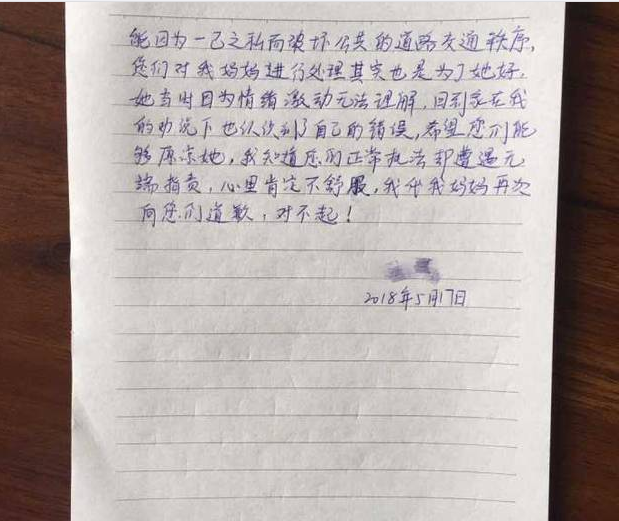 能因为一己之私而破坏公共的道路交通秩序,
您们对我妈妈进行处理其实也是为了她好,
她当时因为情绪激动无法理解,回到家在我
的劝说下也认识到了自己的错误,希望您们能
够原凉她,我知道您们正常执法却遭遇无
端指责,心里肯定不舒服,我代我妈妈再次
向您们道歉,对不起!
2018年5月17日